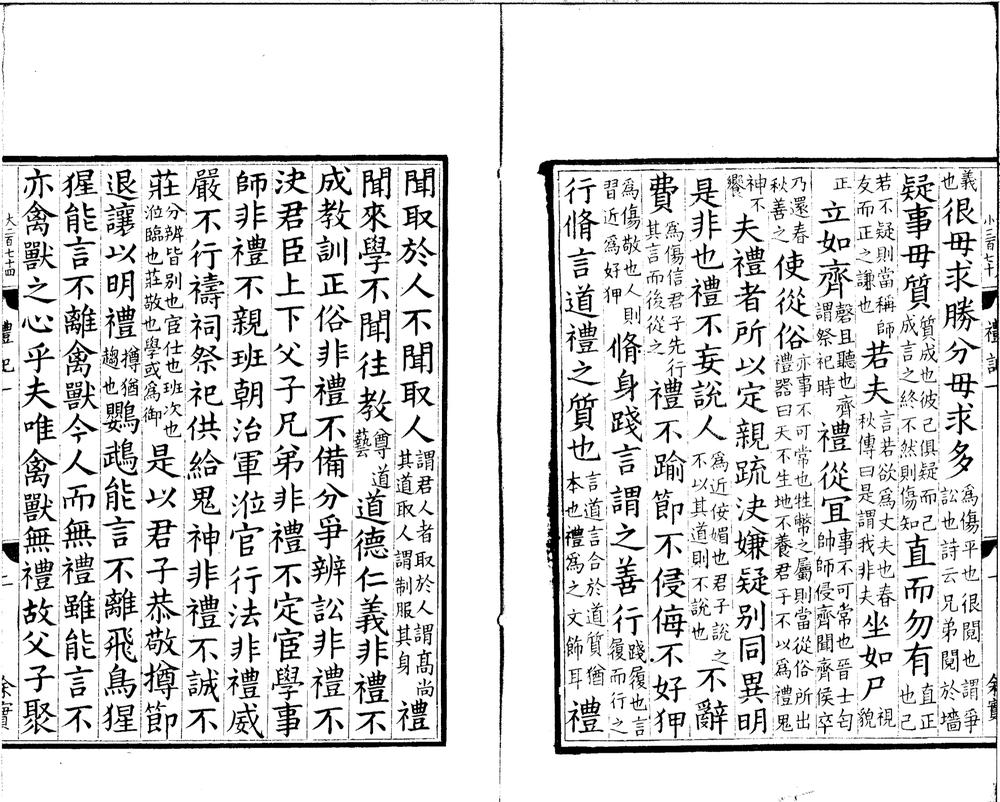 小三百七十 禮記一 余實
義也很毋求勝分毋求多爲傷平也很閱也謂爭訟也詩云兄弟閱於墻
疑事毋質質成也彼己俱疑而己成言之終不然則傷知直而勿有直正也己
若不疑則當稱師友而正之謙也若夫言若欲爲丈夫也春秋傳曰是謂我非夫坐如尸視貌
正立如齊磬且聽也齊謂祭祀時禮從宜事不可常也晉士匄帥師侵齊聞齊侯卒
乃還春秋善之使從俗亦事不可常也牲幣之屬則當從俗所出禮器曰天不生地不養君子不以爲禮鬼
神不饗夫禮者所以定親疏決嫌疑别同異明
是非也禮不妄說人爲近佞媚也君子說之不以其道則不說也不辭
費爲傷信君子先行其言而後從之禮不踰節不侵侮不好狎
爲傷敬也人則習近爲好狎脩身踐言謂之善行踐履也言履而行之
行脩言道禮之質也言道言合於道質猶本也禮爲之文飾耳禮
聞取於人不聞取人謂君人者取於人謂高尚其道取人謂制服其身禮
聞來學不聞往教尊道藝道德仁義非禮不
成教訓正俗非禮不備分爭辨訟非禮不
決君臣上下父子兄弟非禮不定宦學事
師非禮不親班朝治軍涖官行法非禮威
嚴不行禱祠祭祀供給鬼神非禮不誠不
莊分辨皆别也宦仕也班次也涖臨也莊敬也學或爲御是以君子恭敬撙節
退讓以明禮撙猶趨也鸚鵡能言不離飛鳥猩
猩能言不離禽獸今人而無禮雖能言不
亦禽獸之心乎夫唯禽獸無禮故父子聚
大二百七十四 禮記一 二 余實